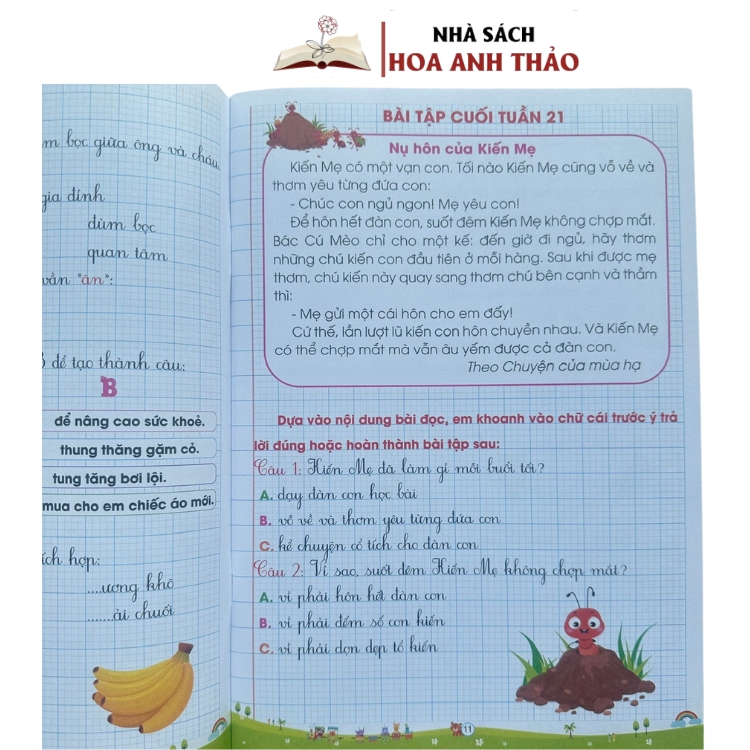 NHÀ SÁCH
HOA ANH THẢO
bọc giữa ông và cháu
gia đình
đùm bọc
quan tâm
vần "ân":
để tạo thành câu:
B
để nâng cao sức khoẻ.
thung thăng gặm cỏ.
tung tăng bơi lội.
mua cho em chiếc áo mới.
ích hợp:
....ương khô
.......ải chuối
BÀI TẬP CUỐI TUẦN 21
Nụ hôn của Kiến Mẹ
Kiến Mẹ có một vạn con. Tối nào Kiến Mẹ cũng vỗ về và
thơm yêu từng đứa con:
- Chúc con ngủ ngon! Mẹ yêu con!
Để hôn hết đàn con, suốt đêm Kiến Mẹ không chợp mắt.
Bác Cú Mèo chỉ cho một kế: đến giờ đi ngủ, hãy thơm
những chú kiến con đầu tiên ở mỗi hàng. Sau khi được mẹ
thơm, chú kiến này quay sang thơm chú bên cạnh và thầm
thì:
- Mẹ gửi một cái hôn cho em đấy!
Cứ thế, lần lượt lũ kiến con hôn chuyền nhau. Và Kiến Mẹ
có thể chợp mắt mà vẫn âu yếm được cả đàn con.
Theo Chuyện của mùa hạ
Dựa vào nội dung bài đọc, em khoanh vào chữ cái trước ý trả
lời đúng hoặc hoàn thành bài tập sau:
Câu 1: Kiến Mẹ đã làm gì mỗi buổi tối?
A. dạy đàn con học bài
B. vỗ về và thơm yêu từng đứa con
C. kể chuyện cổ tích cho đàn con
Câu 2: Vì sao, suốt đêm Kiến Mẹ không chợp mắt?
A. vì phải hôn hết đàn con
B. vì phải đếm số con kiến
C. vì phải dọn dẹp tổ kiến
11